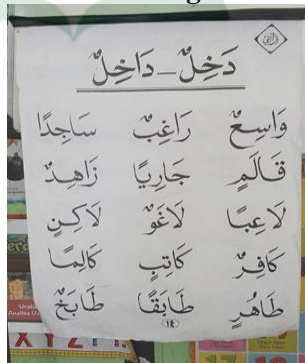 دَخِلٌ - دَاخِلٌ
وَاسِعٌ رَاغِبٌ سَاجِدًا
قَالَمٍ جَارِيًا زَاهِدٌ
لَاعِبًا لَاغَوٌ لَاكِنٍ
كَافِرٌ كَاتِبٍ كَالِمًا
طَاهُرٍ طَابَقًا طَابَخٌ
١٤
X Y Z